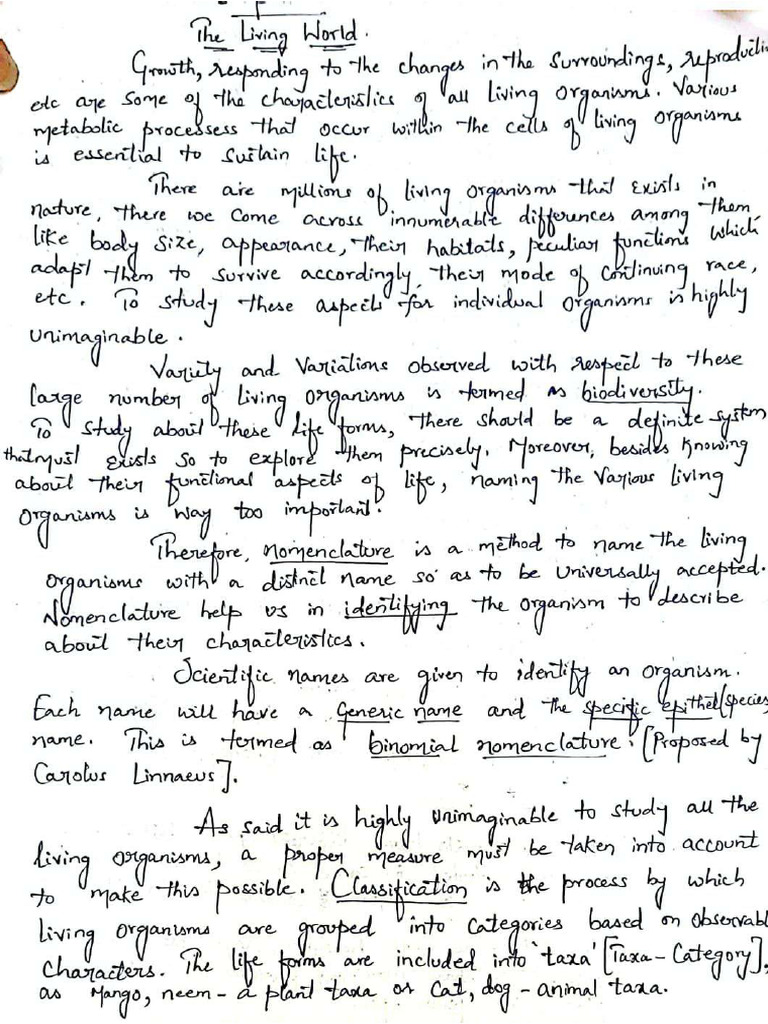 The Living World.
Growth, responding to the changes in the surroundings, reproductio
etc are some of the characteristics of all living organisms. Various
metabolic processess that occur within the cells of living organisms
is essential to sustain life.
There are millions of living organisms that exists in
nature, there we come across innumerable differences among them
like body size, appearance, their habitats, peculiar functions which
adapt them to survive accordingly, their mode of continuing race,
etc. To study these aspects for individual organisms is highly
unimaginable.
Variety and variations observed with respect to these
large number of living organisms is termed as biodiversity.
To study about these life forms, there should be a definite system
that must exists so to explore them precisely. Moreover, besides knowing
about their functional aspects of life, naming the various living
organisms is way too important.
Therefore, nomenclature is a method to name the living
organisms with a distinct name so as to be universally accepted.
Nomenclature help us in identifying the organism to describe
about their characteristics.
Scientific names are given to identify an organism.
Each name will have a generic name and the specific epithet/species
name. This is termed as binomial nomenclature. [Proposed by
Carolus Linnaeus].
As said it is highly unimaginable to study all the
living organisms, a proper measure must be taken into account
to make this possible. Classification is the process by which
living organisms are grouped into categories based on observabl
characters. The life forms are included into 'taxa' [Taxa - Category],
as Mango, neem - a plant taxa or cat, dog - animal taxa.